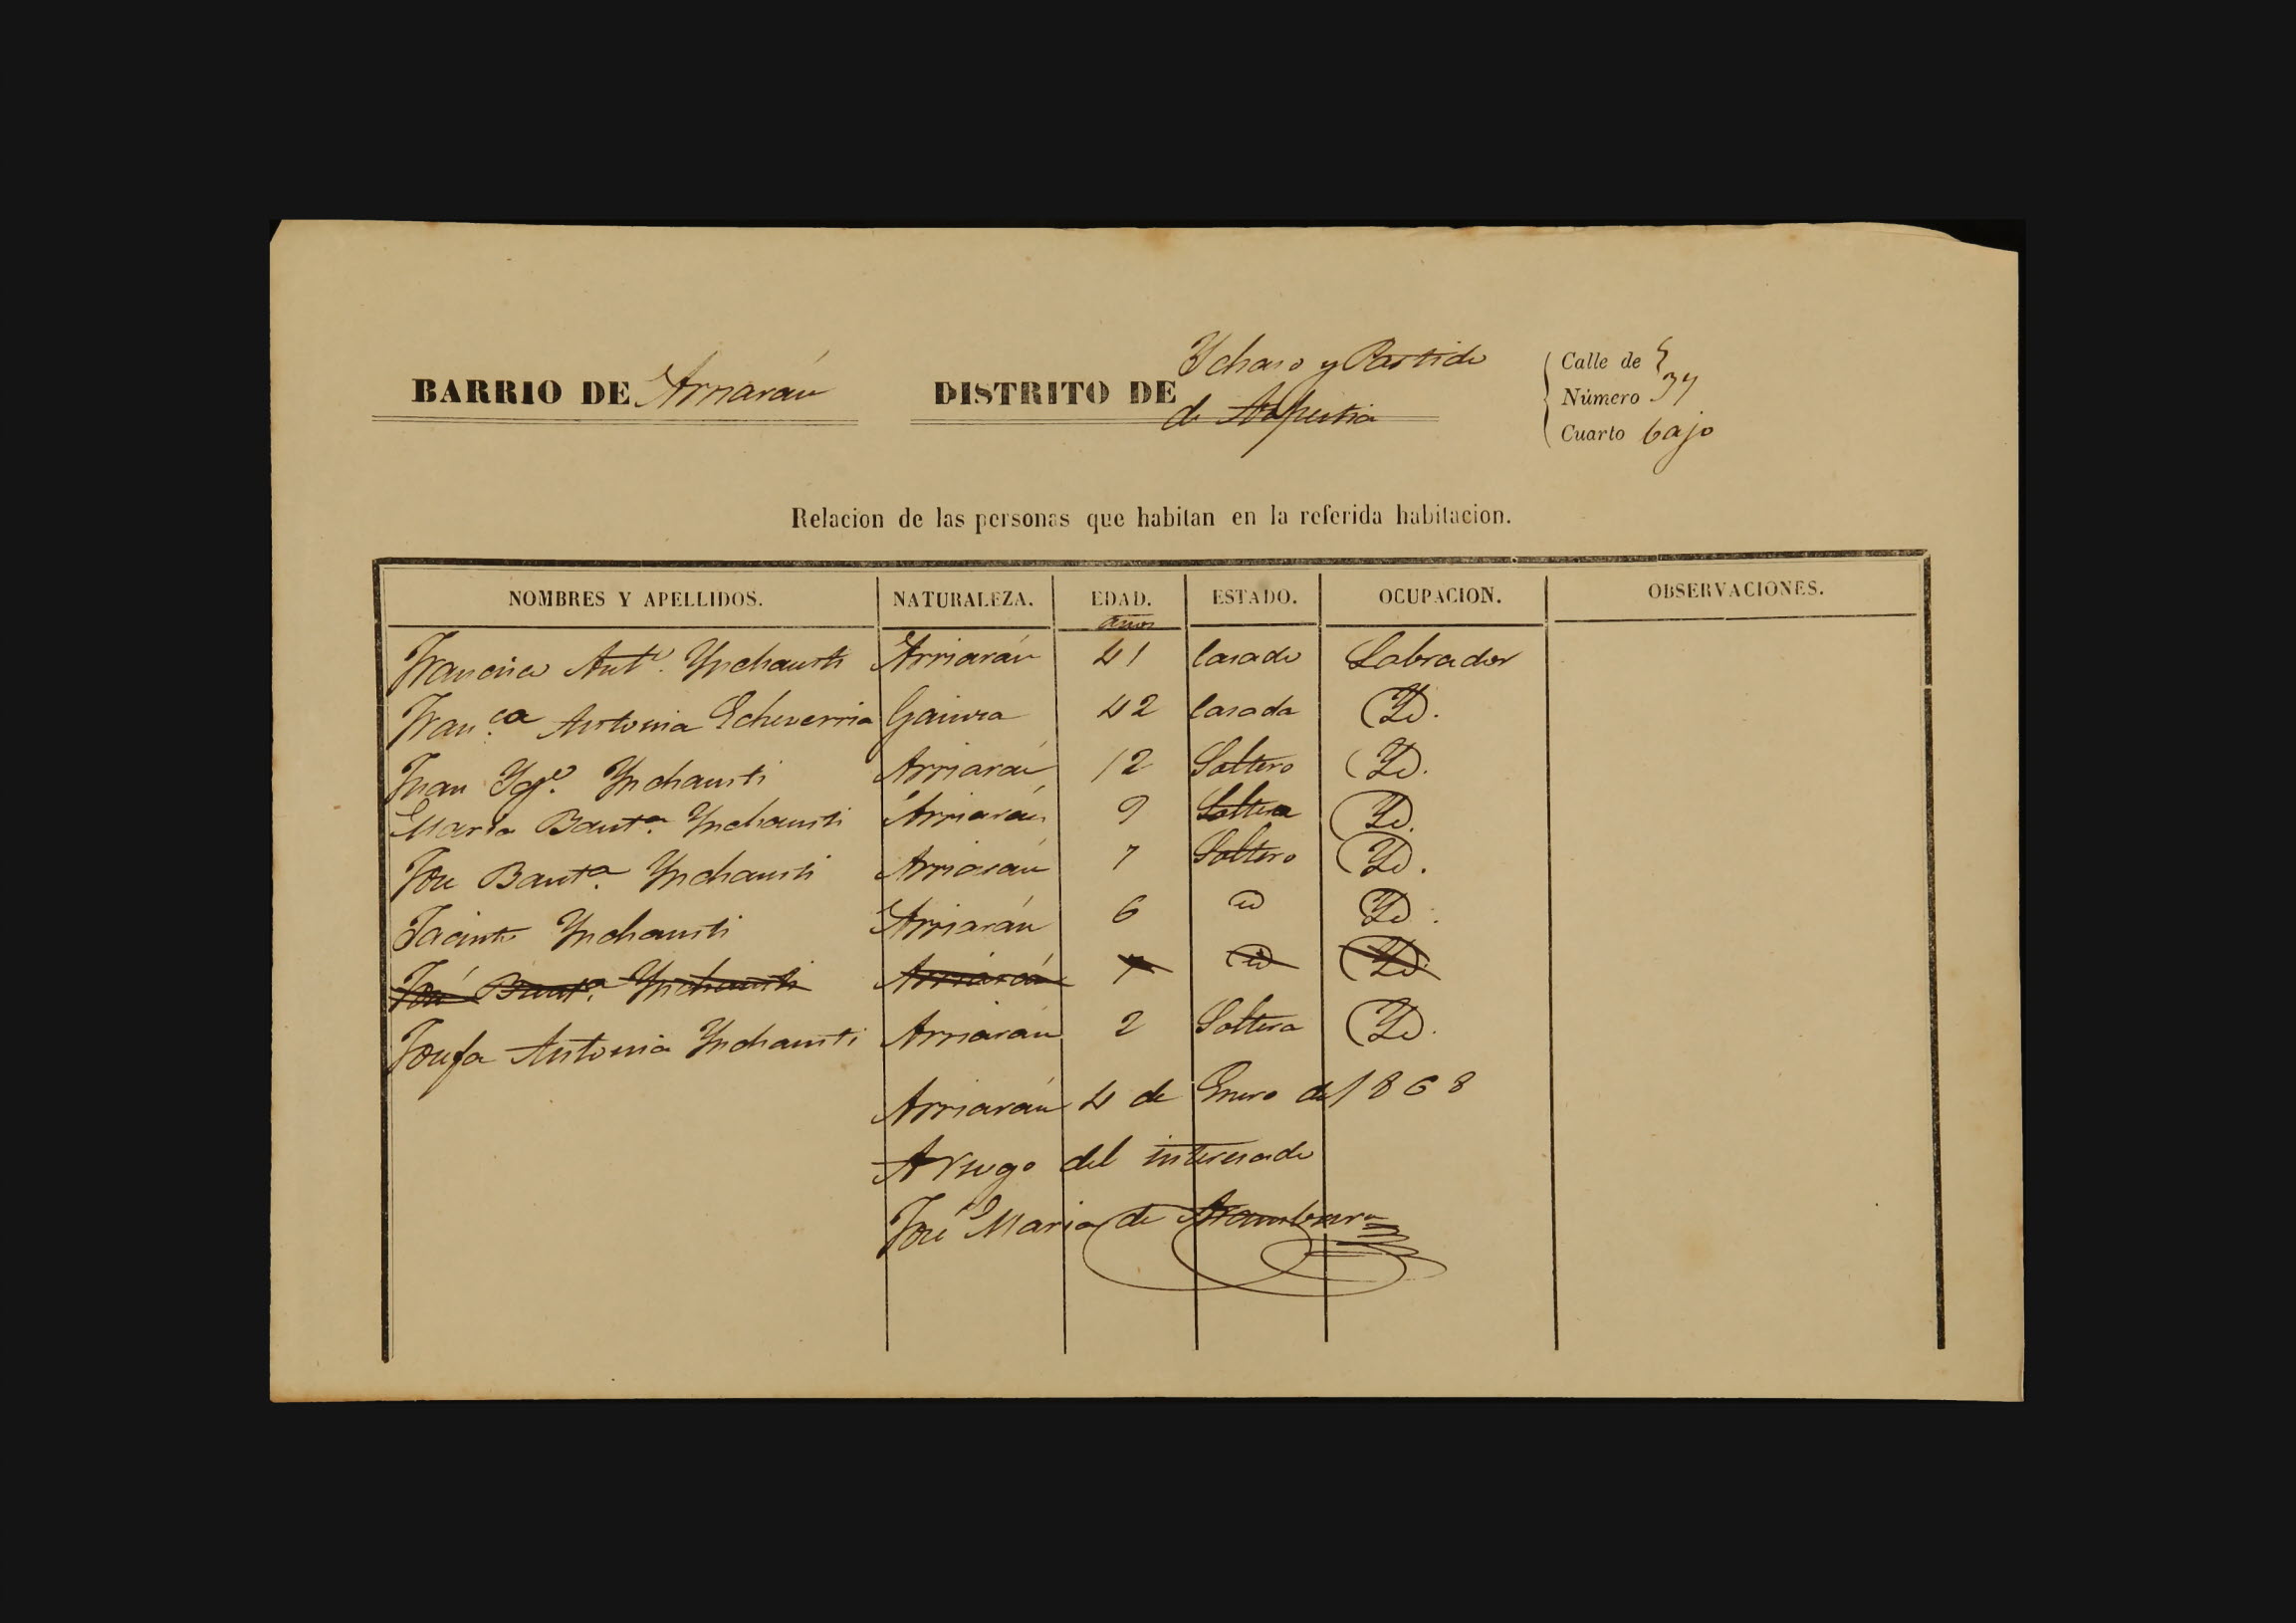 BARRIO DE Arriarán DISTRITO DE Ychaso y Partido
de Azpeitia
Calle de
Número 37
Cuarto bajo
Relacion de las personas que habitan en la referida habitacion.
NOMBRES Y APELLIDOS. NATURALEZA. EDAD. ESTADO. OCUPACION. OBSERVACIONES.
años
Francisco Ant.º Ynchausti Arriarán 41 Casado Labrador
Fran.ca Antonia Echeverria Gainza 42 Casada Yd.
Juan Ygº. Ynchausti Arriarán 12 Soltero Yd.
Maria Baut.a Ynchausti Arriarán 9 Soltera Yd.
Jose Baut.a Ynchausti Arriarán 7 Soltero Yd.
Jacinto Ynchausti Arriarán 6 id Yd.
José Baut.a Ynchausti Arriarán 7 id Yd.
Josefa Antonia Ynchausti Arriarán 2 Soltera Yd.
Arriarán 4 de Enero de 1868
A ruego del interesado
José Maria de Aramburu